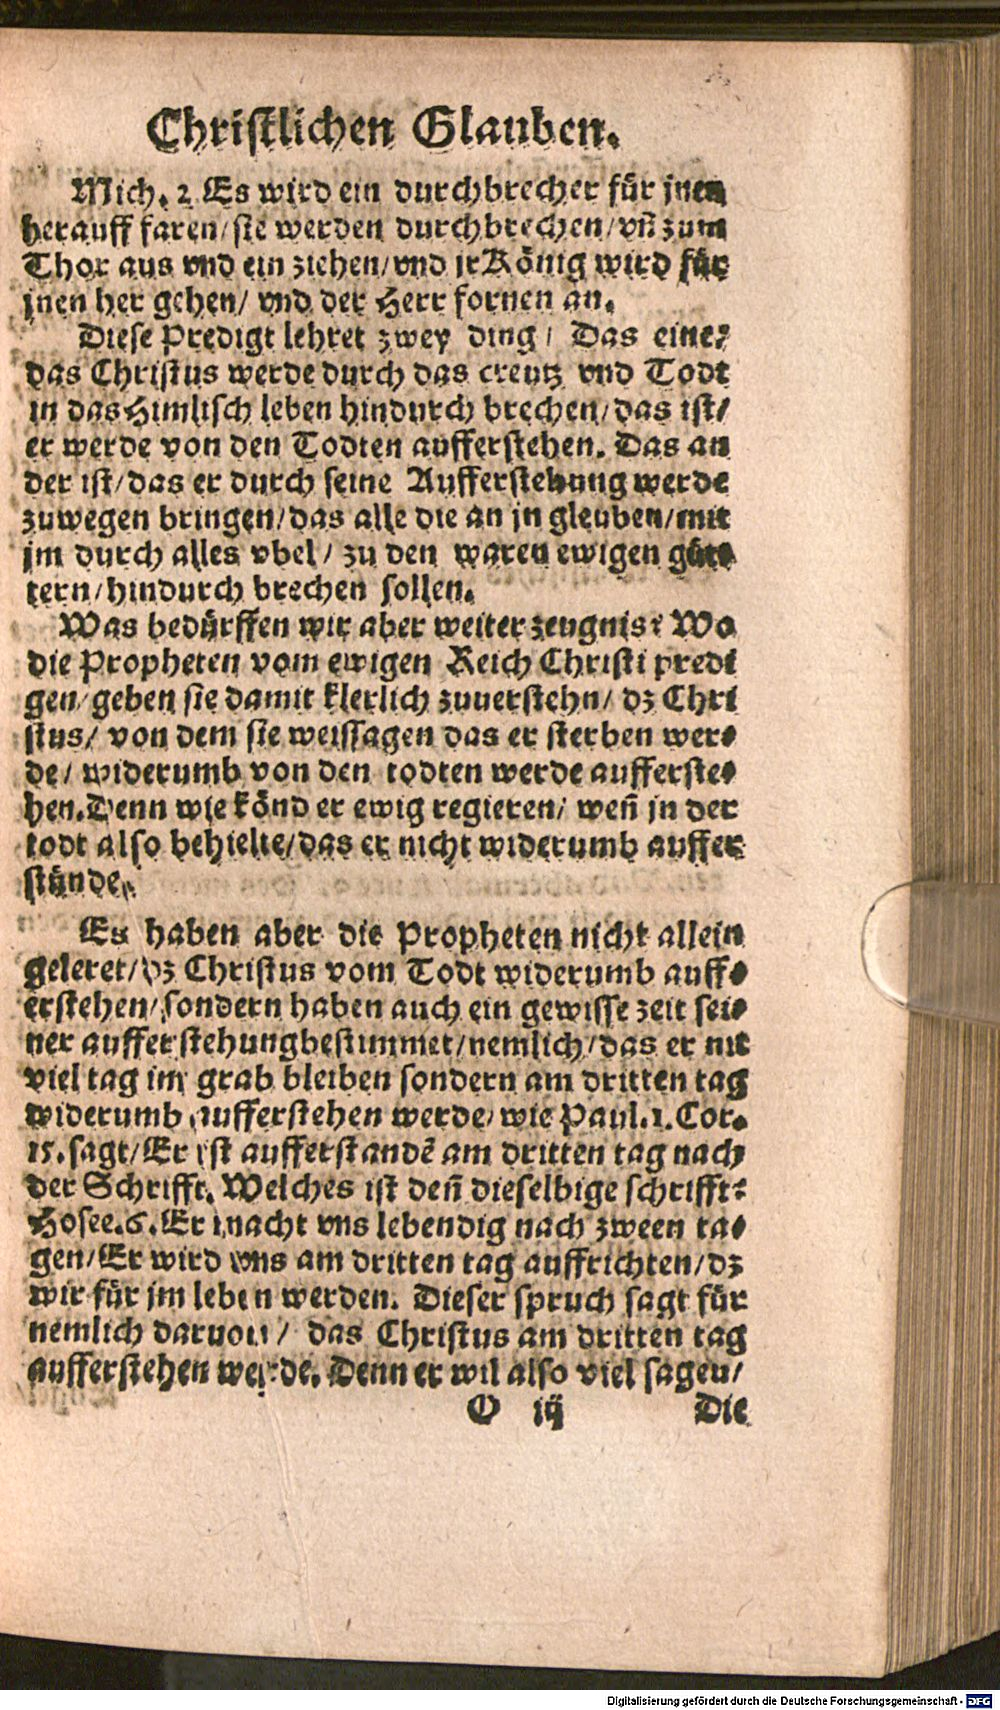 Christlichen Glauben.
Mich. 2 Es wird ein durchbrecher für jnen
herauff faren/ sie werden durchbrechen/ vñ zum
Thor aus vnd ein ziehen/ vnd jr König wird für
jnen her gehen/ vnd der Herr fornen an.
Diese Predigt lehret zwey ding/ Das eine:
das Christus werde durch das creutz vnd Todt
in das Himlisch leben hindurch brechen/ das ist/
er werde von den Todten aufferstehen. Das an
der ist/ das er durch seine Aufferstehung werde
zuwegen bringen/ das alle die an jn gleuben/ mit
jm durch alles vbel/ zu den waren ewigen güt⸗
tern/ hindurch brechen sollen.
Was bedürffen wir aber weiter zeugnis? Wo
die Propheten vom ewigen Reich Christi predi
gen/ geben sie damit klerlich zuuerstehn/ dz Chri
stus/ von dem sie weissagen das er sterben wer⸗
de/ widerumb von den todten werde aufferste⸗
hen. Denn wie könd er ewig regieren/ weñ jn der
todt also behielte/ das er nicht widerumb auffer
stünde.
Es haben aber die Propheten nicht allein
geleret/ dz Christus vom Todt widerumb auff⸗
erstehen/ sondern haben auch ein gewisse zeit sei⸗
ner aufferstehung bestimmet/ nemlich/ das er nit
viel tag im grab bleiben sondern am dritten tag
widerumb aufferstehen werde/ wie Paul. 1. Cor.
15. sagt/ Er ist aufferstandē am dritten tag nach
der Schrifft. Welches ist deñ dieselbige schrifft:
Hosee. 6. Er macht vns lebendig nach zween ta⸗
gen/ Er wird vns am dritten tag auffrichten/ dz
wir für jm leben werden. Dieser spruch sagt für
nemlich daruon/ das Christus am dritten tag
aufferstehen werde. Denn er wil also viel sagen/
O iij Die
Digitalisierung gefördert durch die Deutsche Forschungsgemeinschaft - DFG